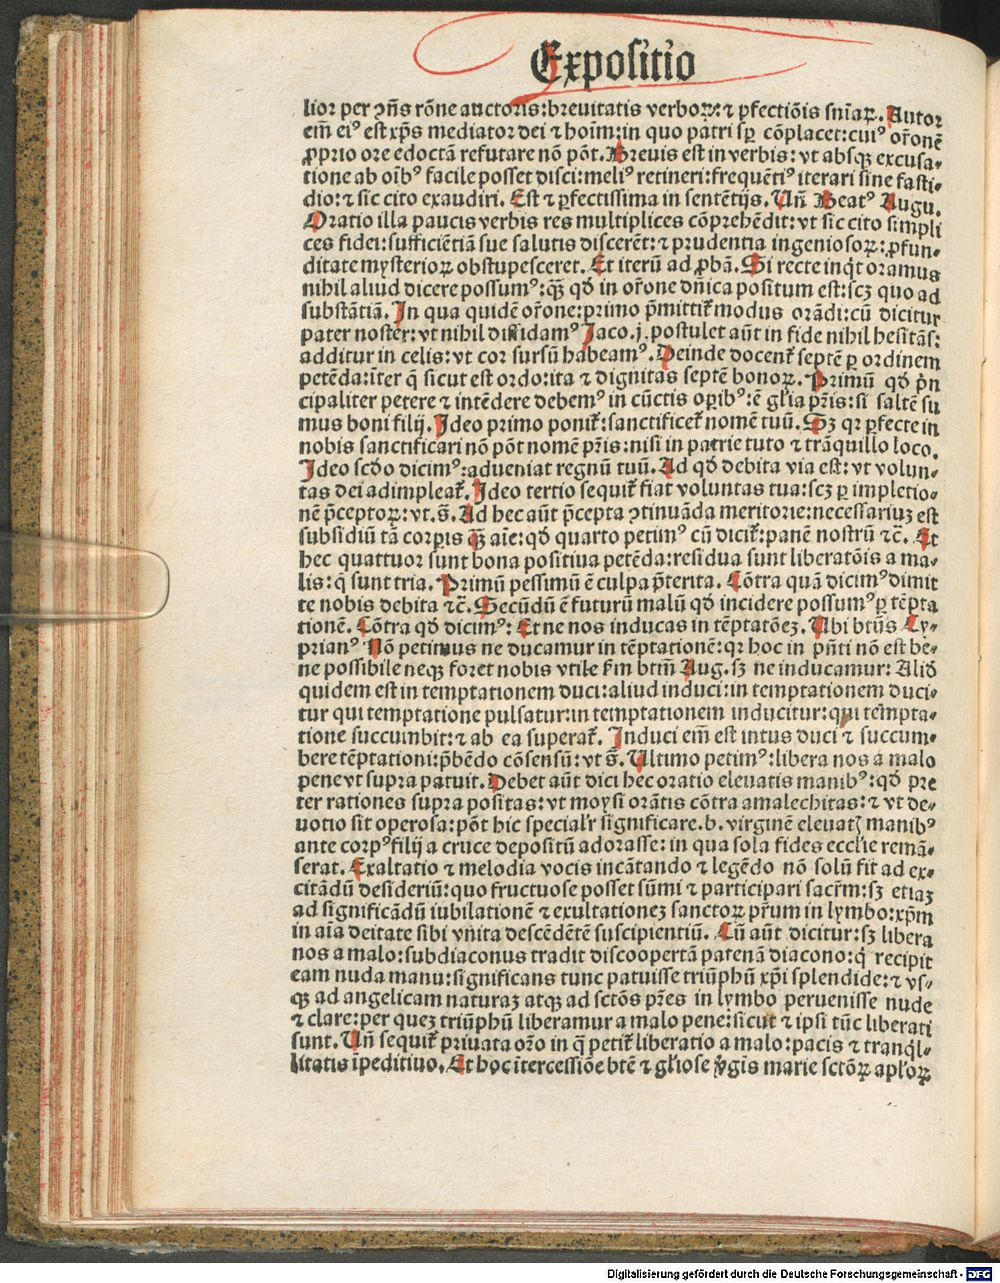 Expositio
lior per ↄn̄s rōne auctoris:breuitatis verboꝝ:⁊ ꝑfectiōis sn̄iaꝝ. Autor
em̄ eiꝰ est xp̄s mediator dei ⁊ hoīm:in quo patri sꝑ cōplacet:cuiꝰ or̄onē
ꝓprio ore edoctā refutare nō pōt. Breuis est in verbis: vt absqꝫ excusa⸗
tione ab oībꝰ facile posset disci:meliꝰ retineri:frequētiꝰ iterari sine fasti⸗
dio:⁊ sic cito exaudiri. Est ⁊ ꝑfectissima in sentētijs. Un̄ Beatꝰ Augu.
Oratio illa paucis verbis res multiplices cōprehēdit: vt sic cito simpli
ces fidei:sufficiētiā sue salutis discerēt:⁊ prudentia ingeniosoꝝ:ꝓfun⸗
ditate mysterioꝝ obstupesceret. Et iterū ad ꝓbā. Si recte inq̇t oramus
nihil aliud dicere possumꝰ:qꝫ̄ qd̄ in or̄one dn̄ica positum est:scꝫ quo ad
substātiā. In qua quidē or̄one:primo p̄mittit᷑ modus orādi:cū dicitur
pater noster: vt nihil diffidamꝰ Jaco.j. postulet aūt in fide nihil hesitās:
additur in celis: vt cor sursū habeamꝰ. Deinde docent᷑ septē ꝑ ordinem
petēda:īter q̄ sicut est ordo:ita ⁊ dignitas septē bonoꝝ. Primū qd̄ p̄n
cipaliter petere ⁊ intēdere debemꝰ in cūctis oꝑibꝰ:ē gl̄ia pr̄is: si saltē su
mus boni filij. Ideo primo ponit᷑: sanctificet᷑ nomē tuū. Sꝫ qꝛ ꝑfecte in
nobis sanctificari nō pōt nomē pr̄is: nisi in patrie tuto ⁊ trāquillo loco.
Ideo scd̄o dicimꝰ: adueniat regnū tuū. Ad qd̄ debita via est: vt volun⸗
tas dei adimpleat᷑. Ideo tertio sequit᷑ fiat voluntas tua:scꝫ ꝑ impletio⸗
nē p̄ceptoꝝ: vt.s̄. Ad hec aūt p̄cepta ↄtinuāda meritorie:necessariuꝫ est
subsidiū tā corꝑis qꝫ̄ aīe: qd̄ quarto petimꝰ cū dicit᷑: panē nostrū ⁊c̄. Et
hec quattuor sunt bona positiua petēda:residua sunt liberatōis a ma⸗
lis: q̄ sunt tria. Primū pessimū ē culpa p̄terita. Cōtra quā dicimꝰ dimit
te nobis debita ⁊c̄. Secūdū ē futurū malū qd̄ incidere possumꝰ ꝑ tēpta
tionē. Cōtra qd̄ dicimꝰ: Et ne nos inducas in tēptatōeꝫ. Ubi bt̄us Cy⸗
prianꝰ Nō petimus ne ducamur in tēptationē:qꝛ hoc in pn̄ti nō est be⸗
ne possibile neqꝫ foret nobis vtile f̄m bt̄m Aug. sꝫ ne inducamur: Aliđ
quidem est in temptationem duci: aliud induci: in temptationem duci⸗
tur qui temptatione pulsatur: in temptationem inducitur: qui tempta⸗
tione succumbit:⁊ ab ea superat᷑. Induci em̄ est intus duci ⁊ succum⸗
bere tēptationi:p̄bēdo cōsensū: vt s̄. Ultimo petimꝰ:libera nos a malo
pene vt supra patuit. Debet aūt dici hec oratio eleuatis manibꝰ: qd̄ pre
ter rationes supra positas: vt moysi orātis cōtra amalechitas:⁊ vt de⸗
uotio sit operosa: pōt hic special̄r significare .b. virginē eleuatꝭ manibꝰ
ante corpꝰ filij a cruce depositū adorasse: in qua sola fides eccl̄ie remā⸗
serat. Exaltatio ⁊ melodia vocis incātando ⁊ legēdo nō solū fit ad ex⸗
citādū desideriū: quo fructuose posset sūmi ⁊ participari sacr̄m: sꝫ etiaꝫ
ad significādū iubilationē ⁊ exultationeꝫ sanctoꝝ pr̄um in lymbo:xp̄m
in aīa deitate sibi vnita descēdētē suscipientiū. Cū aūt dicitur: sꝫ libera
nos a malo: subdiaconus tradit discoopertā patenā diacono: q̇ recipit
eam nuda manu: significans tunc patuisse triūphū xp̄i splendide:⁊ vs⸗
qꝫ ad angelicam naturaꝫ atqꝫ ad sctōs pr̄es in lymbo peruenisse nude
⁊ clare:per queꝫ triūphū liberamur a malo pene:sicut ⁊ ipsi tūc liberati
sunt. Un̄ sequit᷑ priuata or̄o in q̄ petit᷑ liberatio a malo: pacis ⁊ tranq̇l⸗
litatis īpeditiuo. Et hoc ītercessiōe bt̄e ⁊ gl̄iose v̄gīs marie sctōꝝ apl̄oꝝ
Digitalisierung gefördert durch die Deutsche Forschungsgemeinschaft - DFG